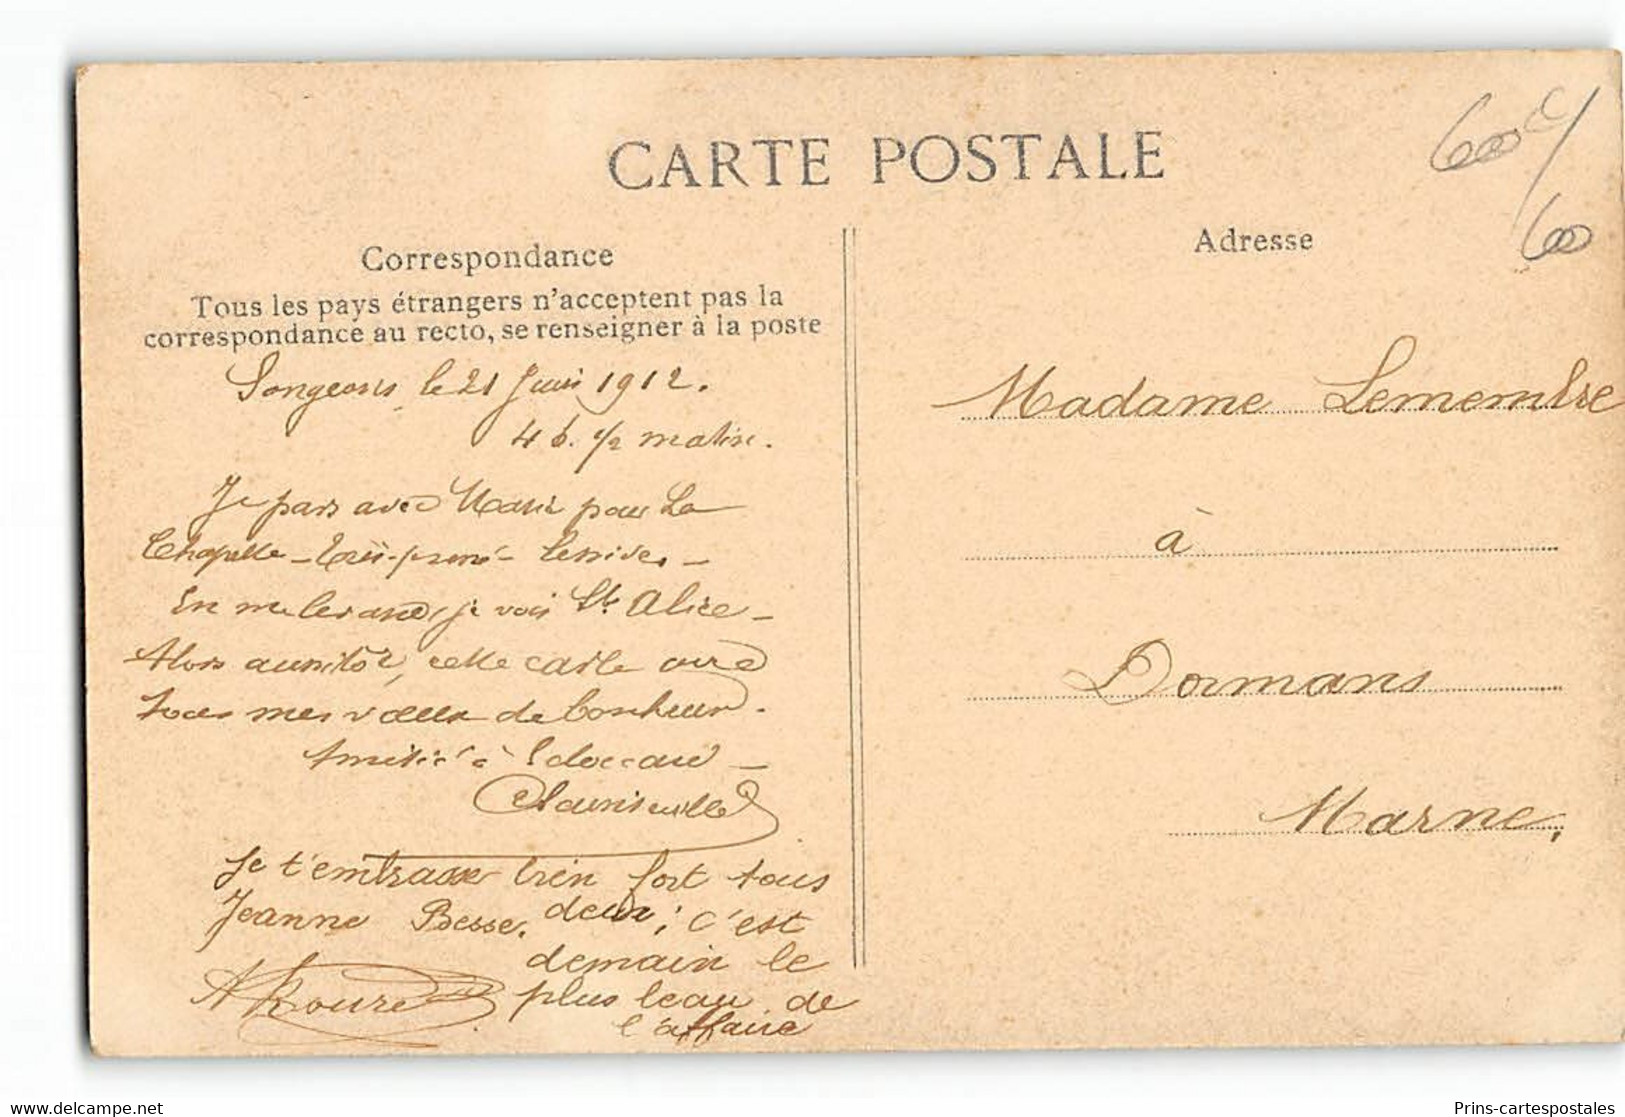 CARTE POSTALE
600 c/
600
Correspondance
Adresse
Tous les pays étrangers n'acceptent pas la
correspondance au recto, se renseigner à la poste
Songeons, le 21 Juin 1912.
4 h. 1/2 matin.
Je pars avec Marie pour La
Chapelle -
En me levant, je vois Ste Alice -
Alors aussitôt, cette carte avec
tous mes vœux de bonheur.
Amitié à Edouard -
Je t'embrasse bien fort tous
Jeanne Besse. deux ; c'est
demain le
A Roure plus beau de
l'affaire
Madame Lemembre
à
Dormans
Marne,
www.delcampe.net
Prins-cartespostales